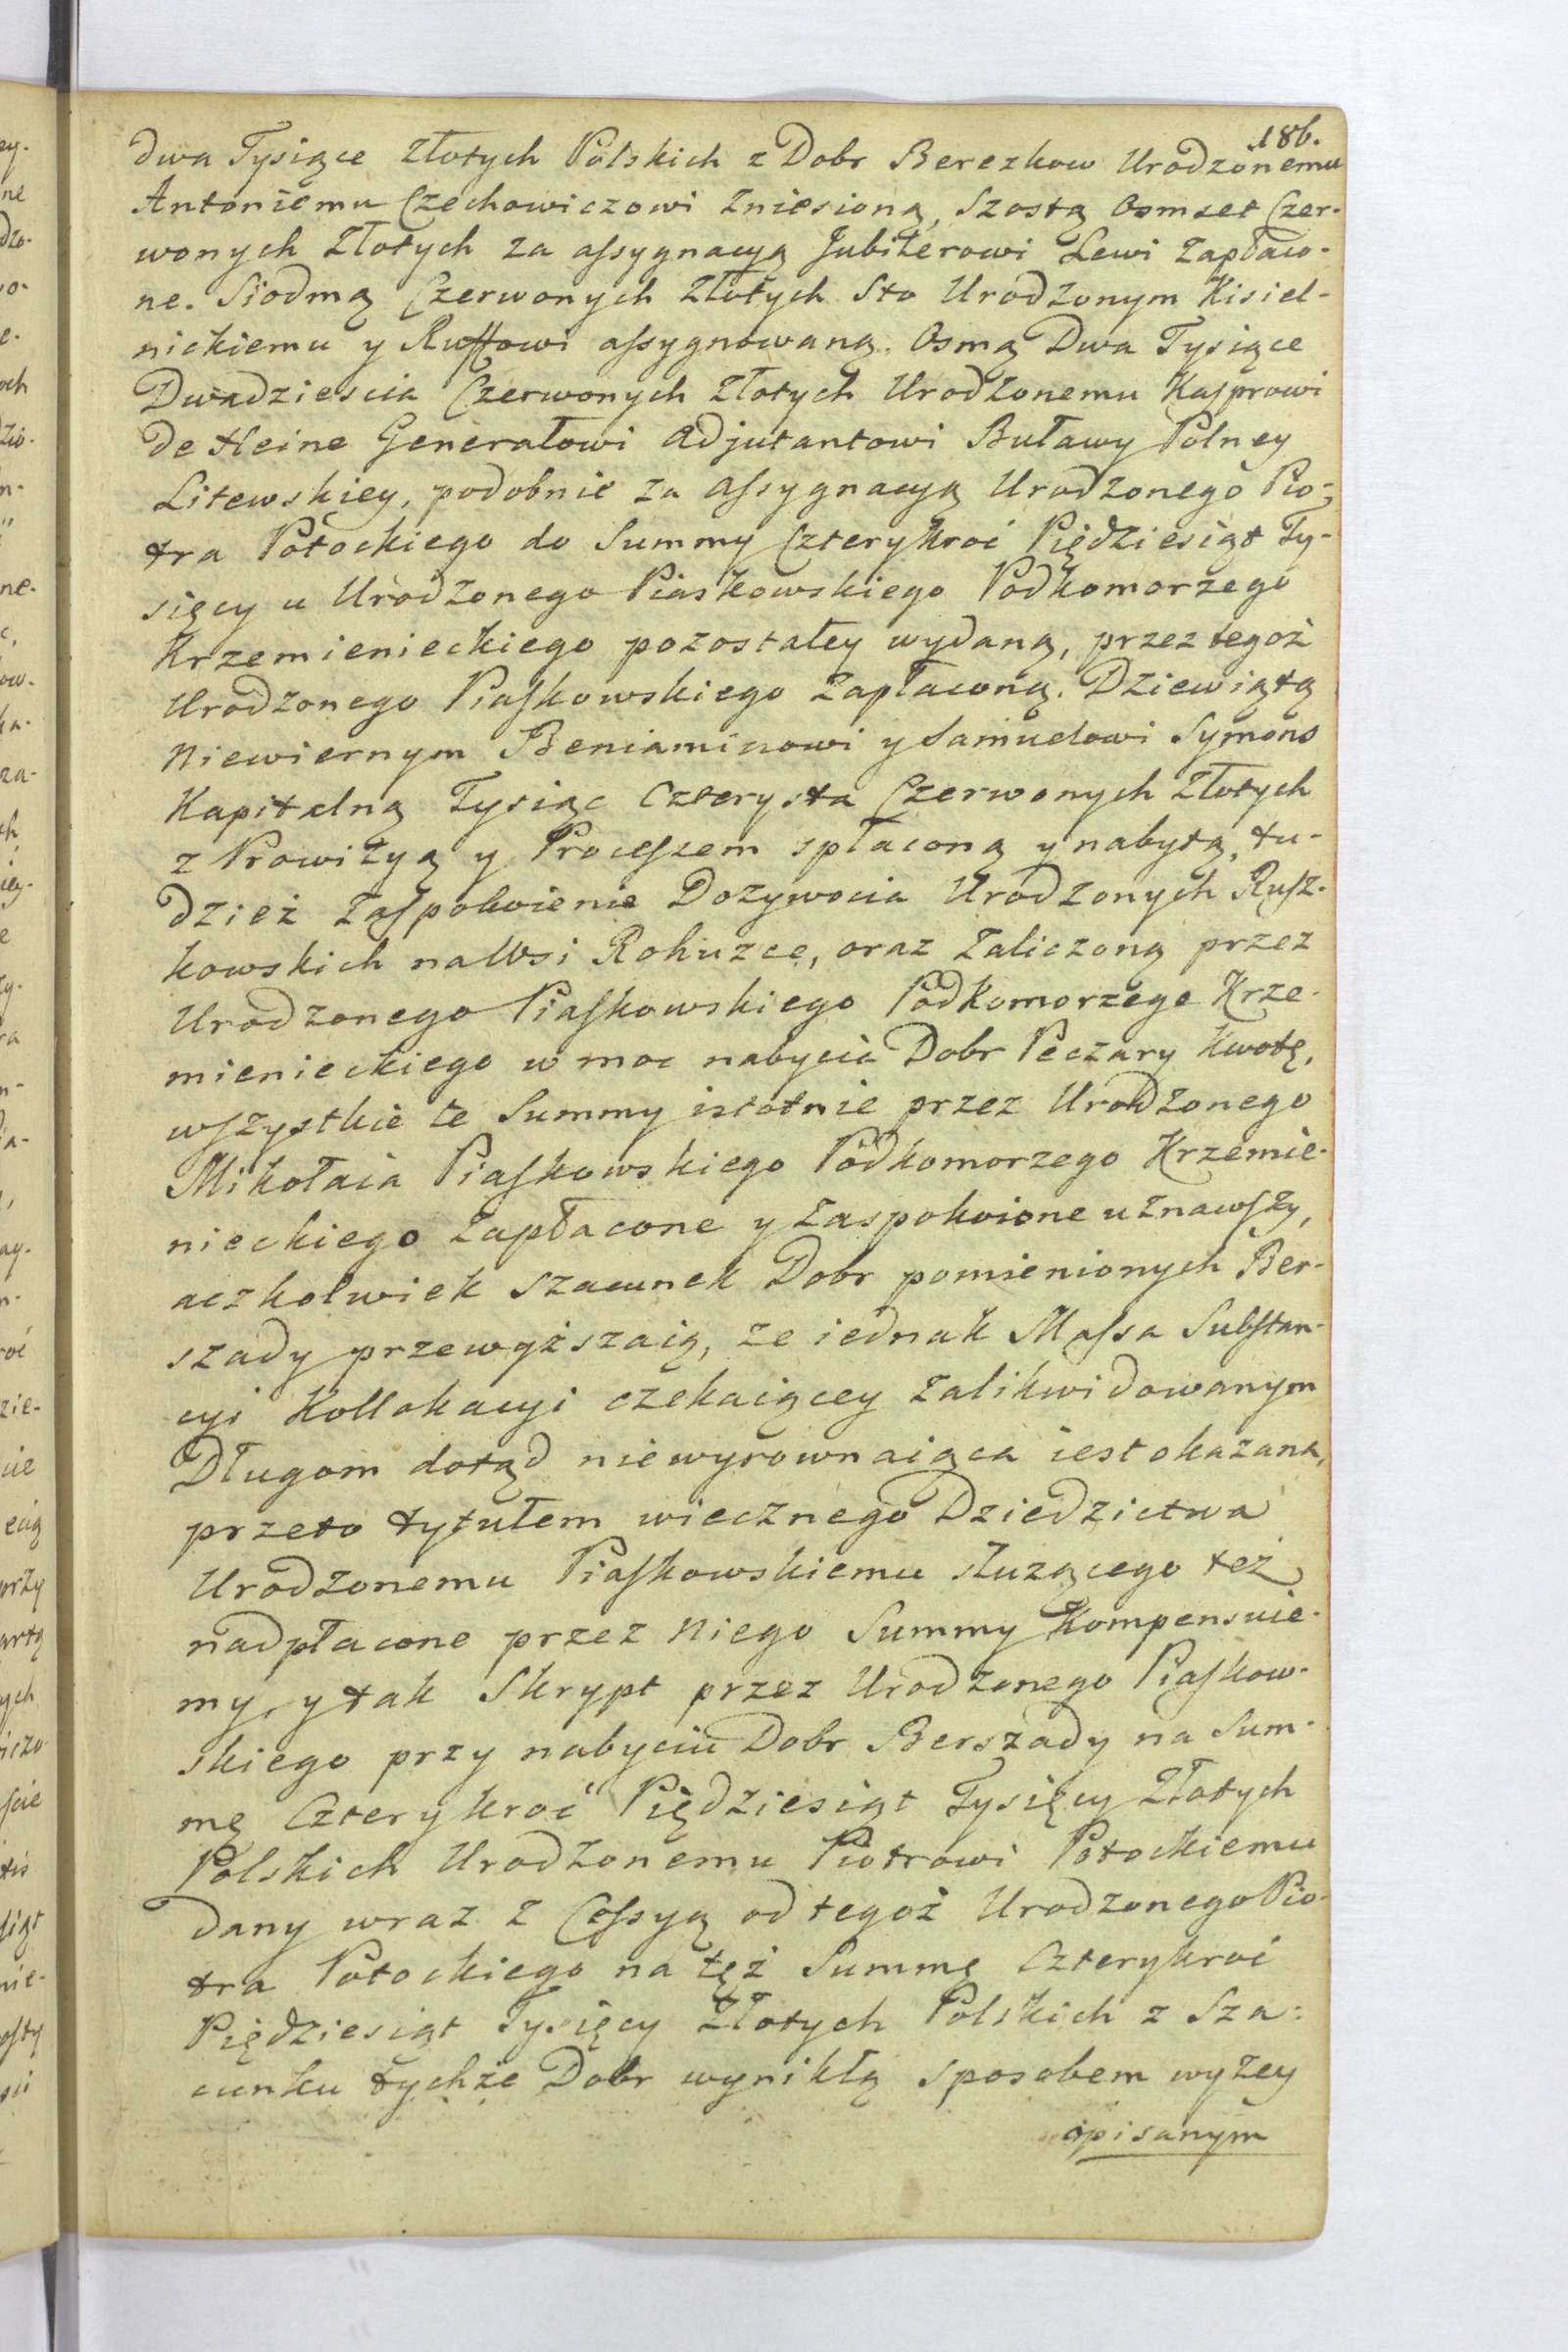 186.
dwa Tysiące Złotych Polskich z Dobr Berezkow Urodzonemu
Antoniemu Czechowiczowi zniesioną, Szostą Osmset Czer-
wonych Złotych za assygnacyą Jubilerowi Lewi zapłaco-
ne. Siodmą Czerwonych Złotych Sto Urodzonym Kisiel-
nickiemu y Ruffowi assygnowaną. Osmą Dwa Tysiące
Dwadziescia Czerwonych Złotych Urodzonemu Kasprowi
de Heine Generałowi Adjutantowi Buławy Polney
Litewskiey, podobnie za Assygnacyą Urodzonego Pio-
tra Potockiego do Summy Czterykroć Pięćdziesiąt Ty-
sięcy u Urodzonego Piaskowskiego Podkomorzego
Krzemienieckiego pozostałey wydaną, przez tegoż
Urodzonego Piaskowskiego zapłaconą. Dziewiątą
Niewiernym Beniaminowi y Samuelowi Symons
Kapitalną Tysiąc Czterysta Czerwonych Złotych
z Prowizyą y Processem spłaconą y nabytą, tu-
dzież Zaspokoienie Dozywocia Urodzonych Rusz-
kowskich na Wsi Rohuzce, oraz Zaliczoną przez
Urodzonego Piaskowskiego Podkomorzego Krze-
mienieckiego w moc nabycia Dobr Peczary Kwotę,
wszystkie te Summy istotnie przez Urodzonego
Mikołaia Piaskowskiego Podkomorzego Krzemie-
nieckiego zapłacone y zaspokoione uznawszy,
aczkolwiek szacunek Dobr pomienionych Ber-
szady przewyższaią, ze iednak Massa Substan-
cyi Kollokacyi czekaiącey zalikwidowanym
Długom dotąd niewyrownaiąca iest okazana,
przeto tytułem wiecznego Dziedzictwa
Urodzonemu Piaskowskiemu służącego też
nadpłacone przez niego Summy Kompensuie-
my, y tak Skrypt przez Urodzonego Piaskow-
skiego przy nabyciu Dobr Berszady na Sum-
mę Czterykroć Pięćdziesiąt Tysięcy Złotych
Polskich Urodzonemu Piotrowi Potockiemu
dany wraz z Cessyą od tegoż Urodzonego Pio-
tra Potockiego na tęż Summę Czterykroć
Pięćdziesiąt Tysięcy Złotych Polskich z Sza-
cunku tychże Dobr wynikłą sposobem wyżey
opisanym